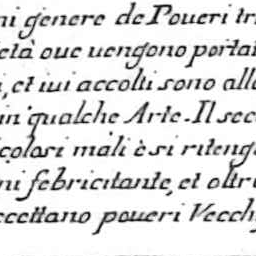 ni genere de Poueri tri
età oue uengono portat
i, et iui accolti sono alle
in qualche Arte. Il seco
icolosi mali è si ritenga
ni febricitante, et oltre
ccettano poueri Vecchj